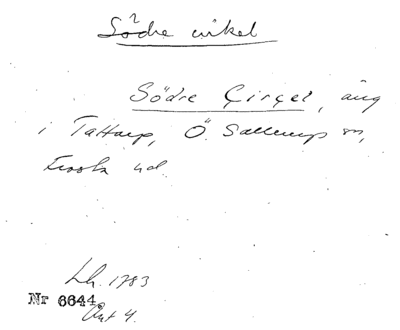 ?
Södre cirkel
Södre Çirçel, äng
i Tattarp, Ö. Sallerups sn,
Frosta hd.
Lh. 1783
Nr 6644
Akt 4.